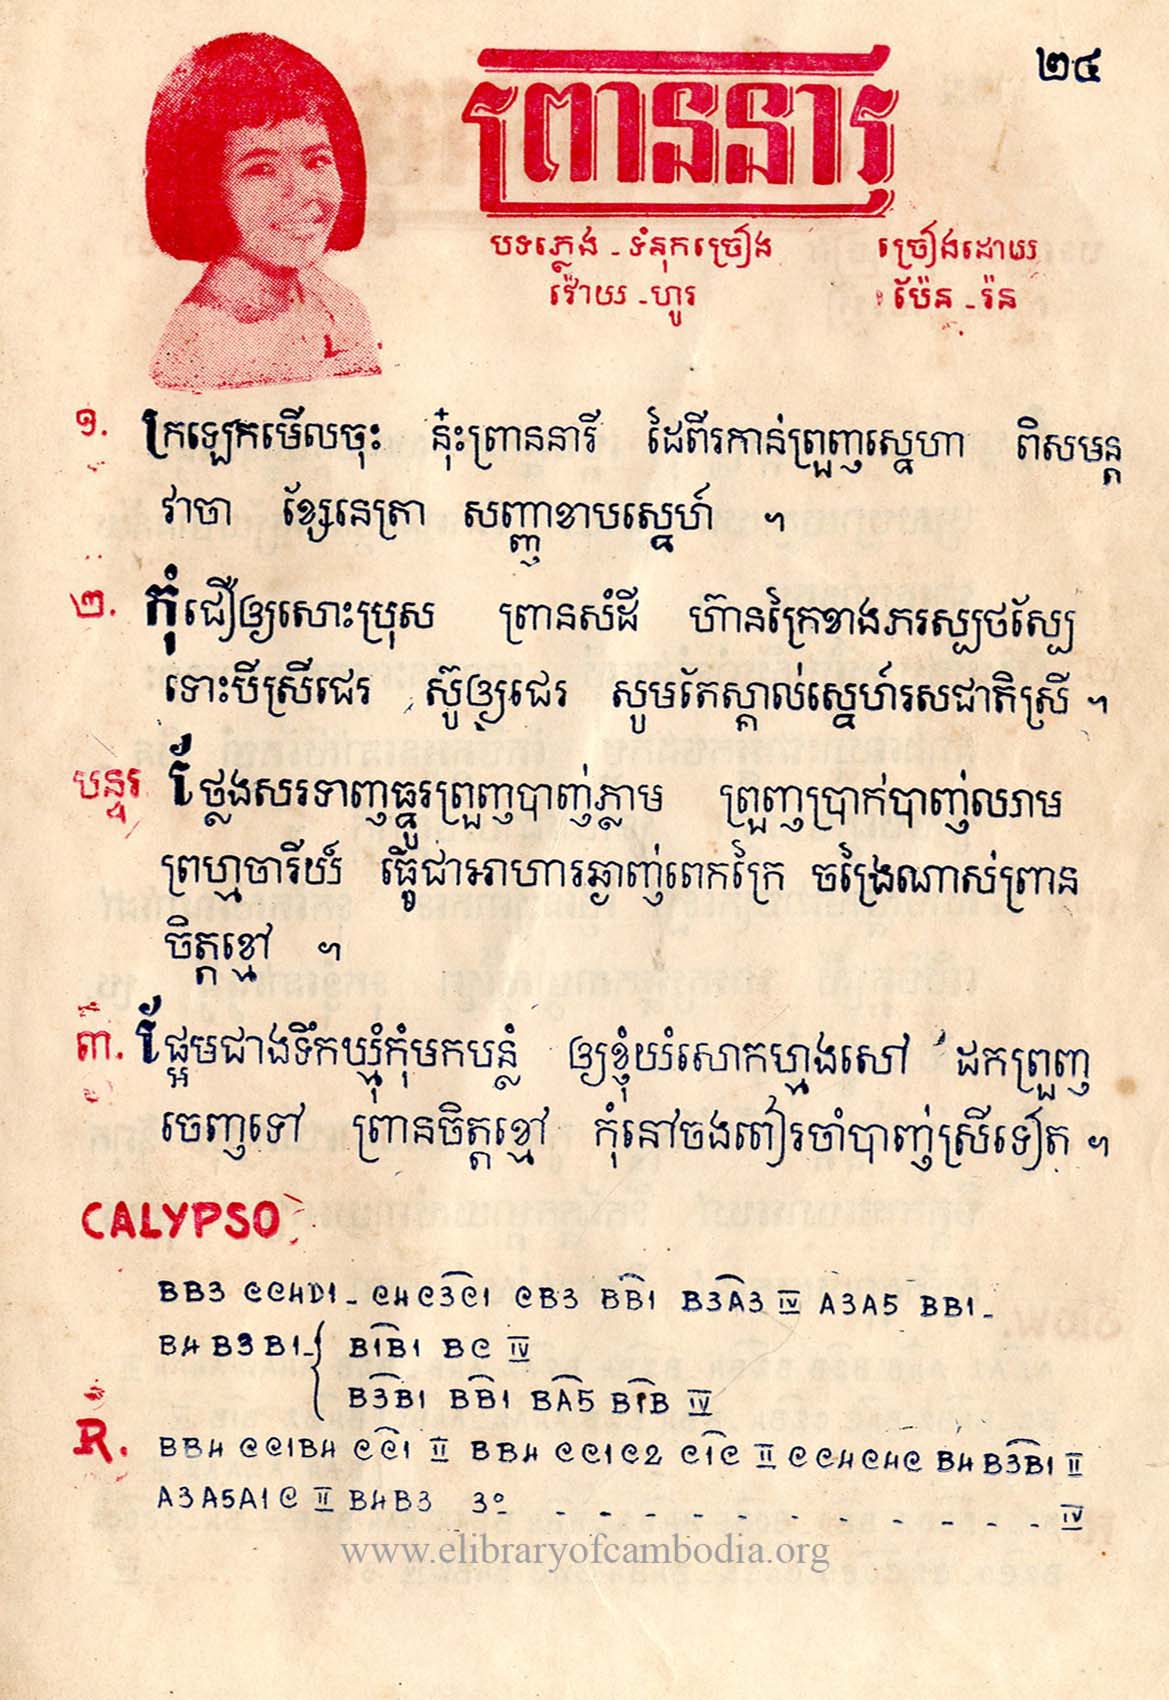 ២៤
ព្រាននារី
បទភ្លេង - ទំនុកច្រៀង
ច្រៀងដោយ
វ៉ោយ - ហូរ
ប៉ែន - រ៉ន
១. ក្រឡេកមើលចុះ នុ៎ះព្រាននារី ដៃពីរកាន់ព្រួញស្នេហា ពិសមន្ត
វាចា ខ្សែនេត្រា សញ្ញាខាបស្នេហ៍ ។
២. កុំជឿឲ្យសោះប្រុស ព្រានសំដី ហ៊ានក្រៃខាងភរស្បថស្បែ
ទោះបីស្រីជេរ ស៊ូឲ្យជេរ សូមតែស្គាល់ស្នេហ៍រសជាតិស្រី ។
បន្ទរ ថ្លែងសរទាញធ្នូរព្រួញបាញ់ភ្លាម ព្រួញប្រាក់បាញ់លាម
ព្រហ្មចារីយ៍ ធ្វើជាអាហារឆ្ងាញ់ពេកក្រៃ ចង្រៃណាស់ព្រាន
ចិត្តខ្មៅ ។
៣. ផ្អែមជាងទឹកឃ្មុំកុំមកបន្លំ ឲ្យខ្ញុំយំសោកហ្មងសៅ ដកព្រួញ
ចេញទៅ ព្រានចិត្តខ្មៅ កុំនៅចងពៀរចាំបាញ់ស្រីទៀត ។
CALYPSO
BB3 CC4D1- C4C3C1 CB3 BB1 B3A3 IV A3A5 BB1-
B4 B3 B1- B1B1 BC IV
B3B1 BB1 BA5 B1B IV
R. BB4 CC1B4 CC1 II BB4 CC1C2 C1C II CC4C4C B4 B3B1 II
A3A5A1 C II B4B3 3º - - - - - - - - - - - - IV
www.elibraryofcambodia.org